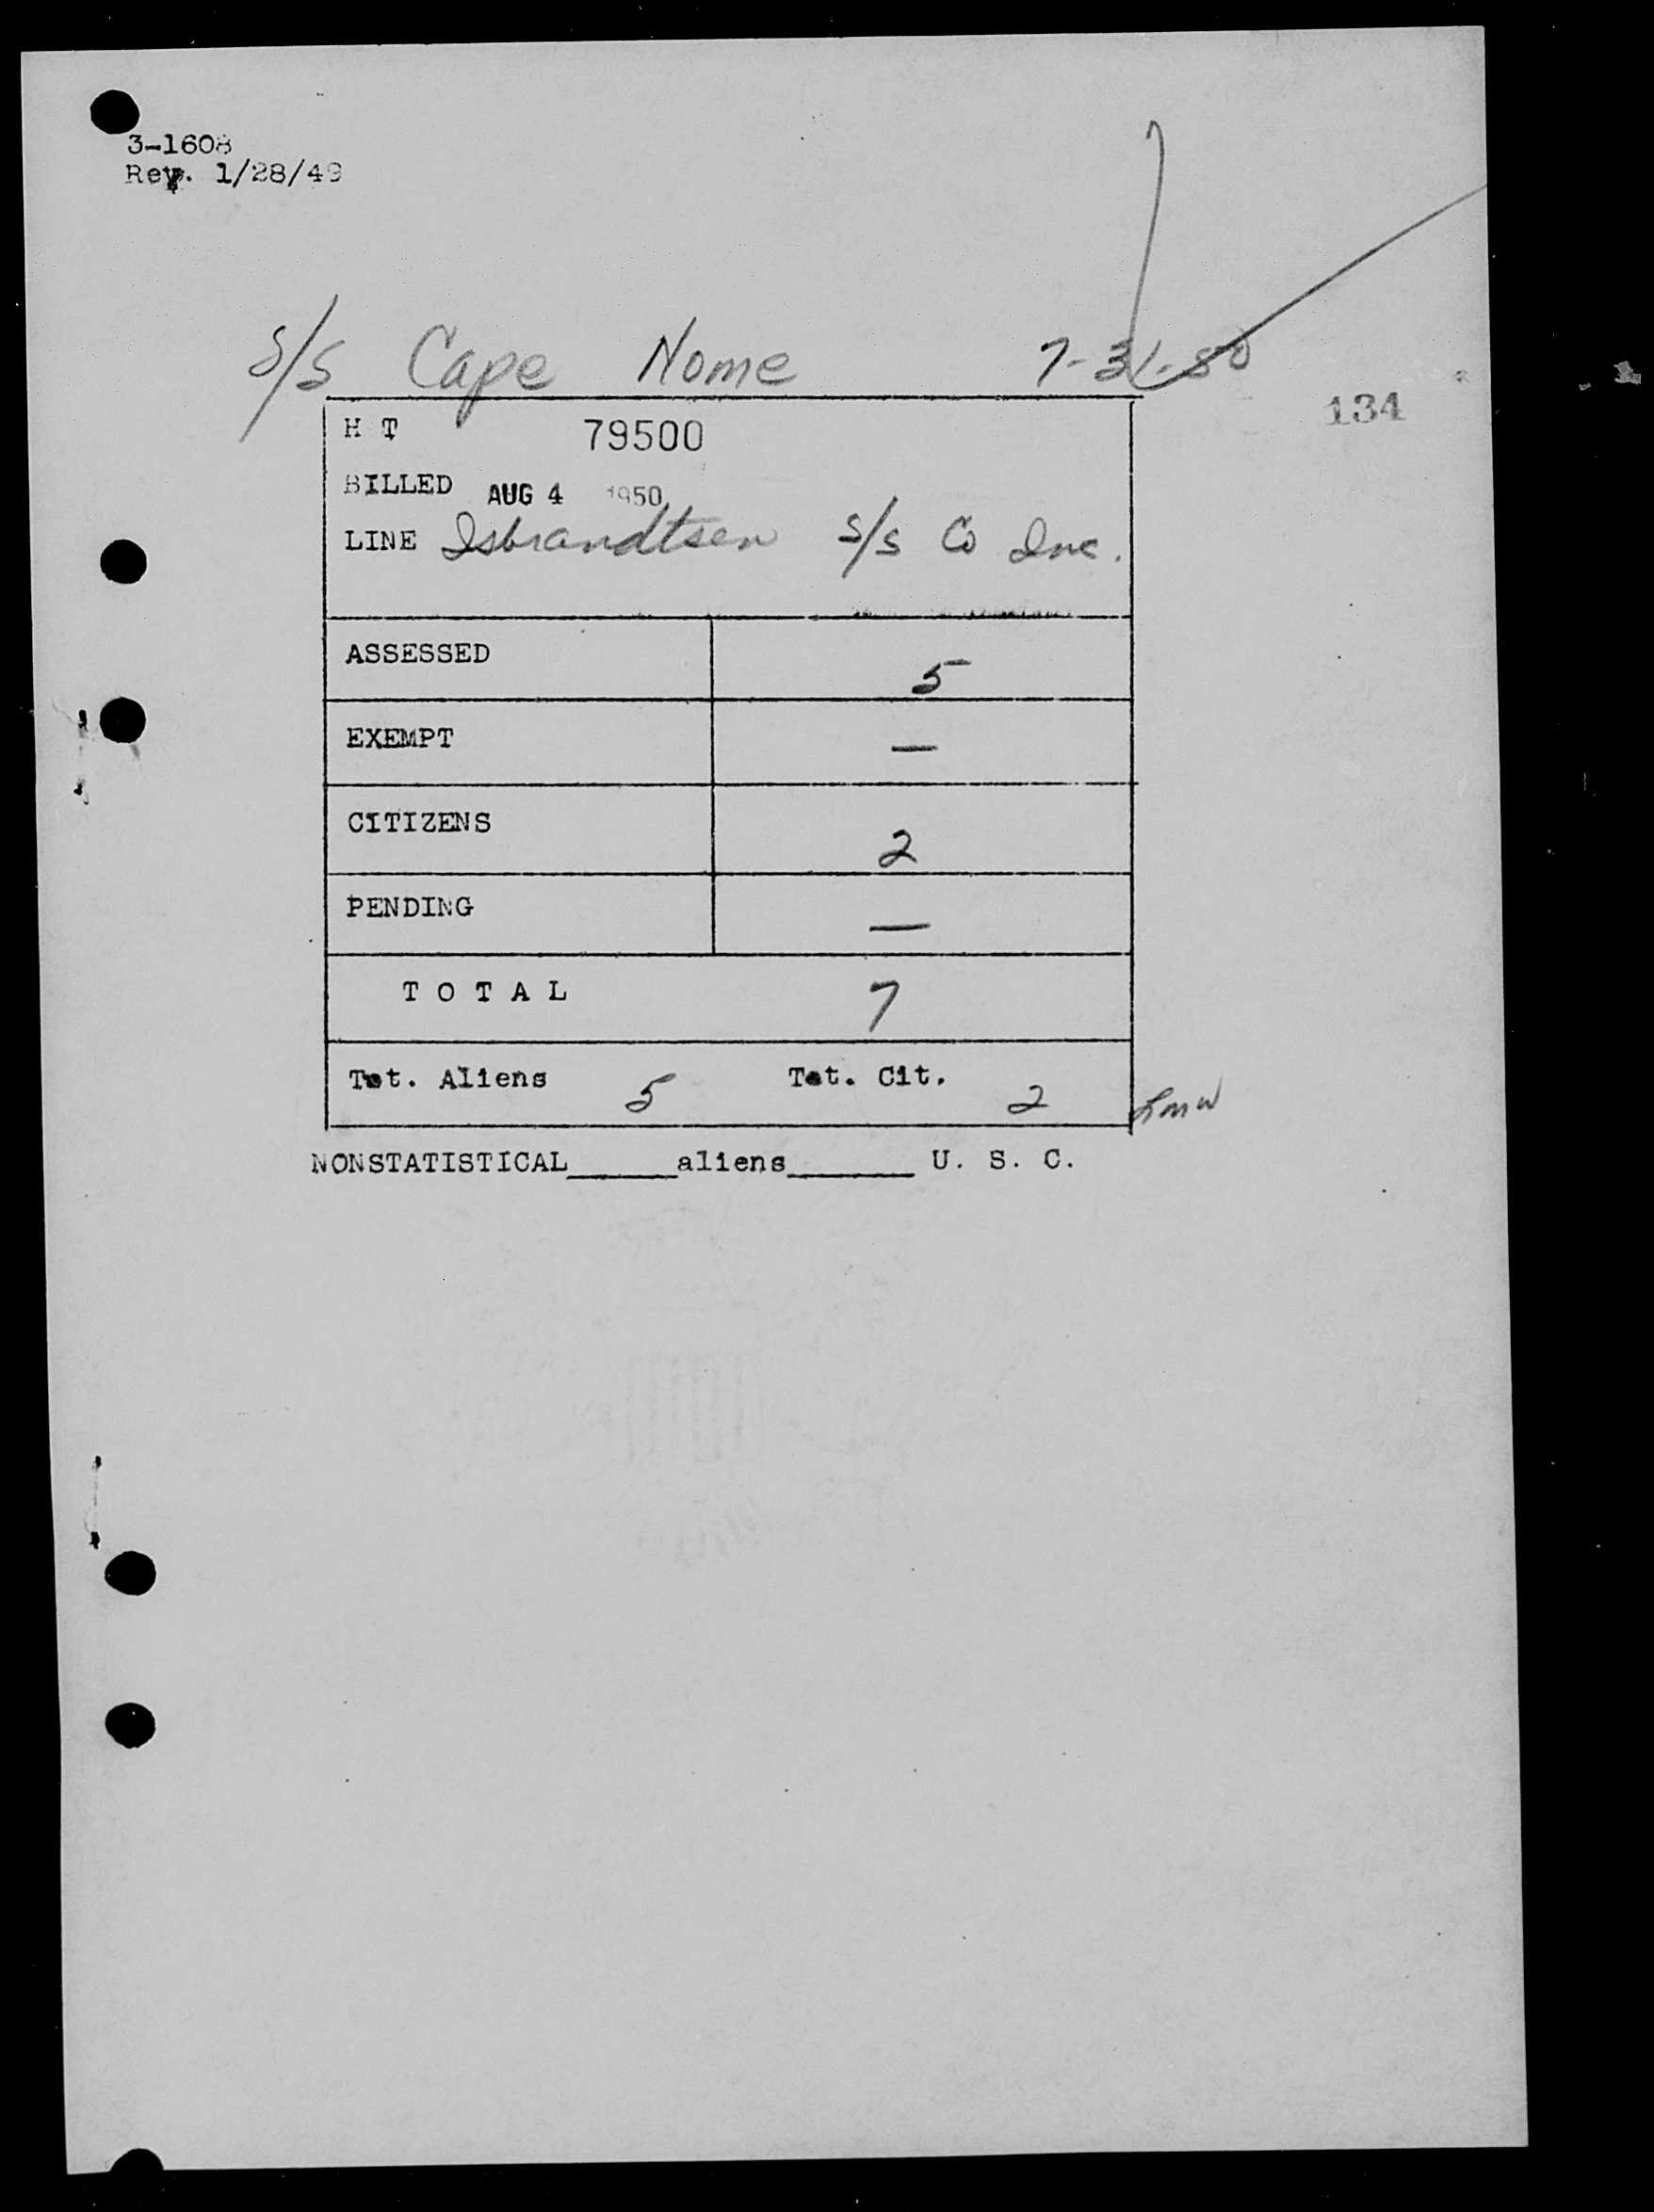 3-1608
Rev. 1/28/49
S/S Cape Nome 7-31-50
134
H T 79500
BILLED AUG 4 1950
LINE Isbrandtsen S/S Co Inc.
ASSESSED 5
EXEMPT —
CITIZENS 2
PENDING —
T O T A L 7
Tot. Aliens 5 Tot. Cit. 2
NONSTATISTICAL_____aliens______ U. S. C.